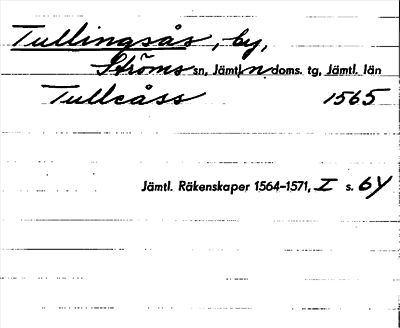 Tullingsås, by,
Ströms sn, Jämtl. n doms. tg, Jämtl. län
Tullcåss 1565
Jämtl. Räkenskaper 1564–1571, I s. 64